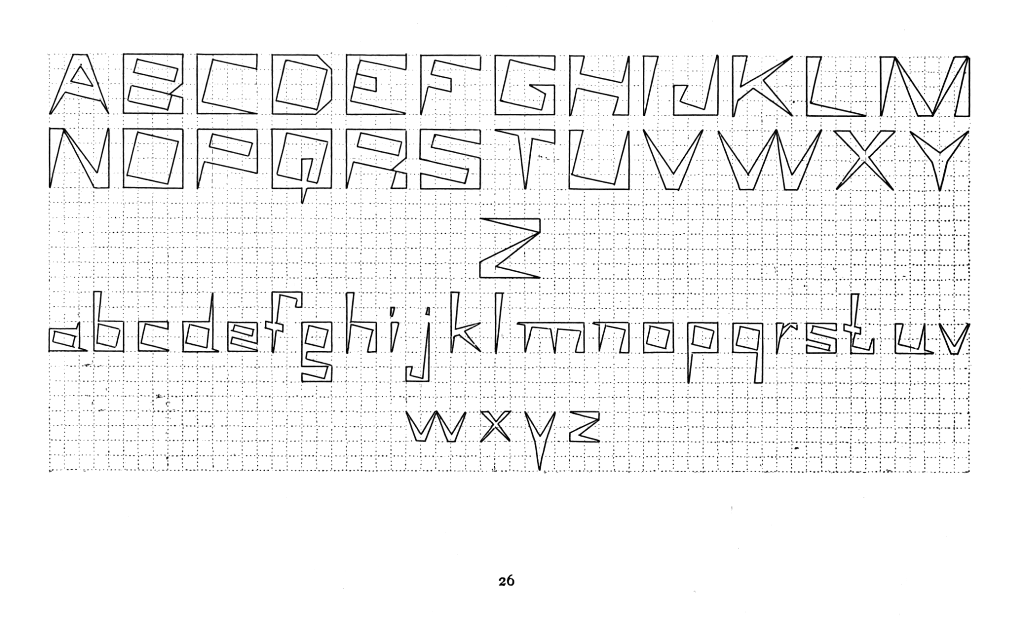 ABCDEFGHIJKLM
NOPQRSTUVWXY
Z
abcdefghijklmnopqrstuv
wxyz
26